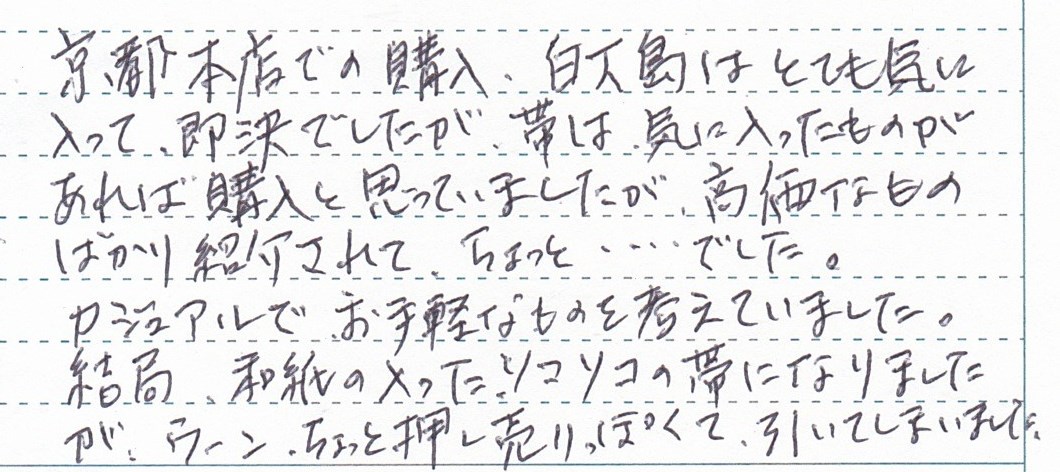 京都本店での購入、白大島はとても気に
入って、即決でしたが、帯は、気に入ったものが
あれば購入と思っていましたが、高価なもの
ばかり紹介されて、ちょっと‥‥でした。
カジュアルで、お手軽なものを考えていました。
結局、和紙の入った、ソコソコの帯になりました
が、ウーン、ちょっと押し売りっぽくて、引いてしまいました。